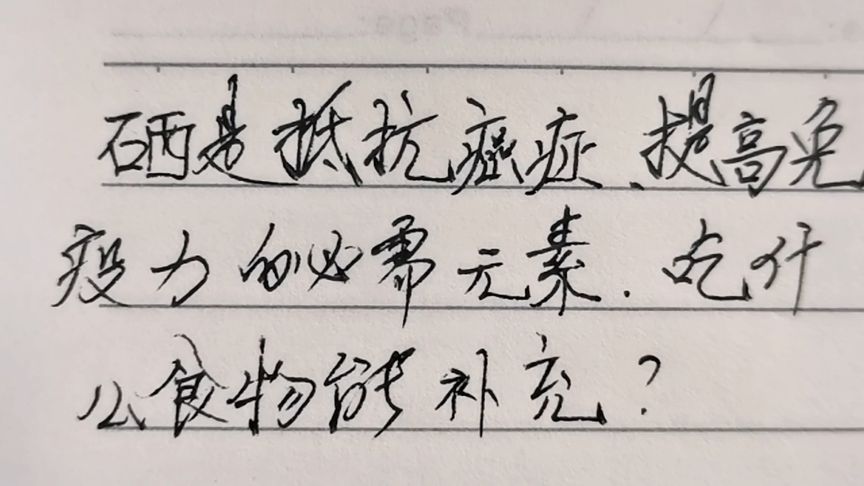 硒是抵抗癌症、提高免
疫力的必需元素.吃什
么食物能补充?